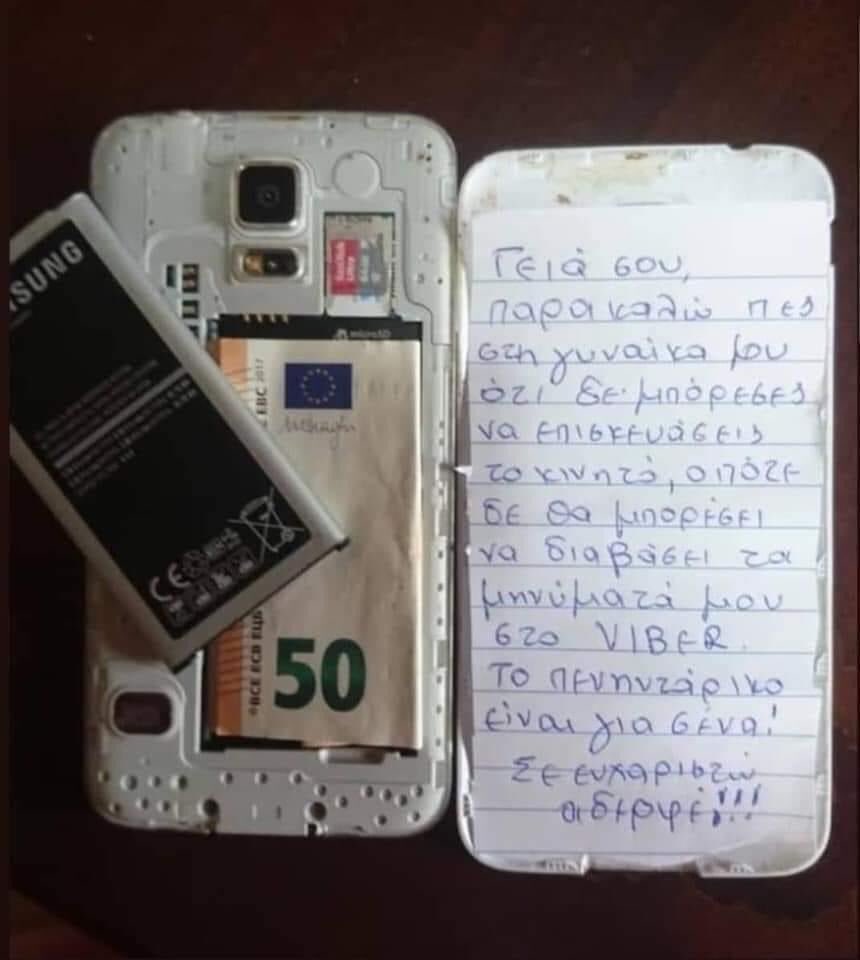 SanDisk
Ultra
microSD
SAMSUNG
EBC 2017
BCE ECB ЕЦБ
50
CE
Γειά σου,
παρακαλώ πες
στη γυναίκα μου
ότι δε μπόρεσες
να επισκευάσεις
το κινητό, οπότε
δε θα μπορέσει
να διαβάσει τα
μηνύματά μου
στο VIBER.
Το πενηντάρικο
είναι για σένα!
Σε ευχαριστώ
αδερφέ!!!